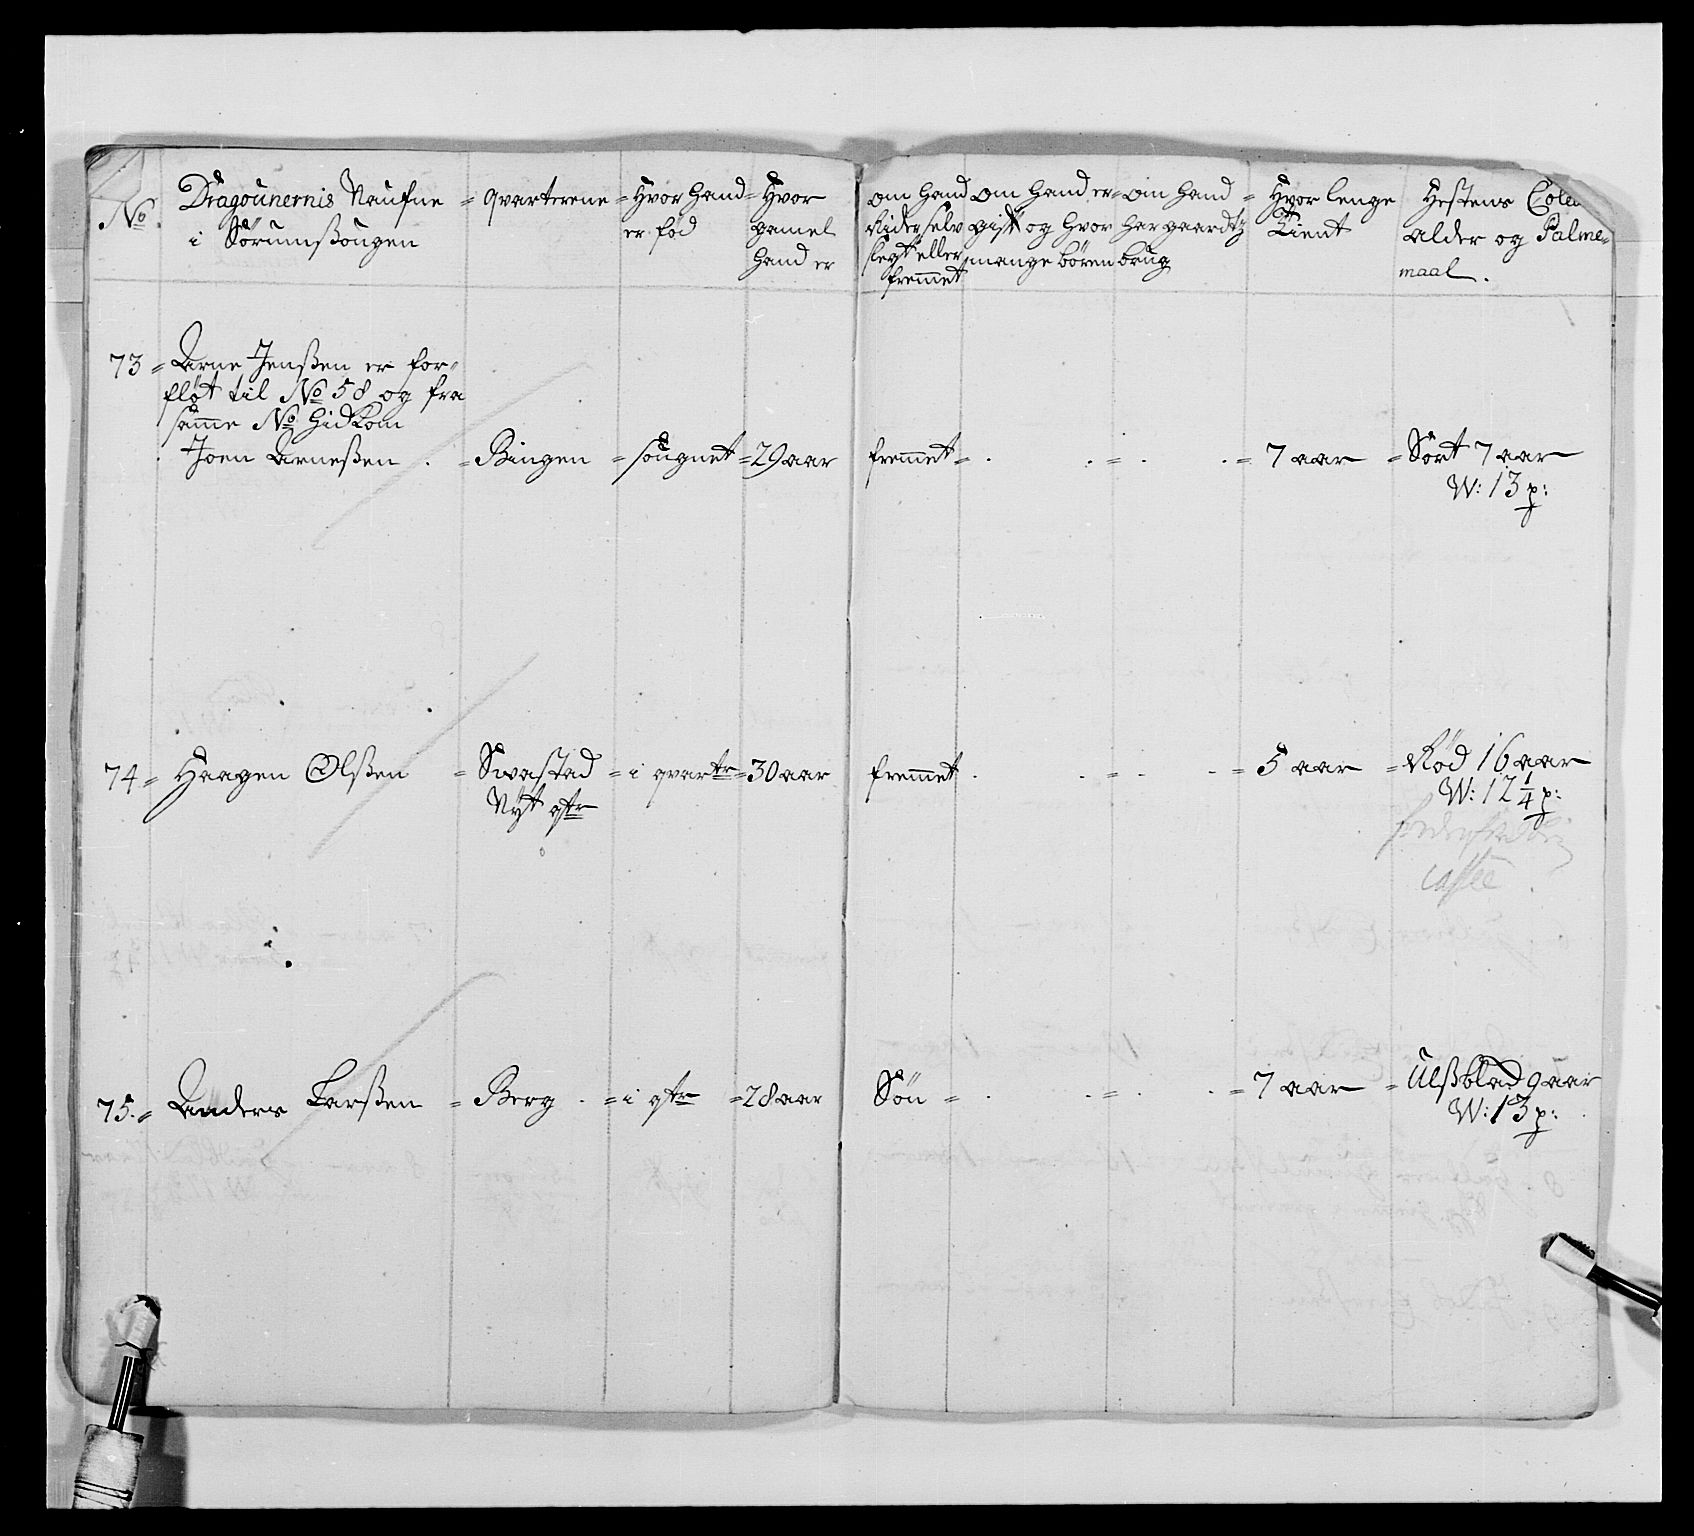 No. Dragounernis Naufne i Sörumsßougen = qvarterene = Hvor Hand er föd = Hvor gamel Hand er
om Hand Rider selv slegt eller fremet om Hand er gift og Hvor mange börn = om Hand Har gaardtz brug = Hvor lenge Tient Hestens Alder og Palme= maal.
73 = Arne Jenßen er for=
fløt til No 58 og fra
samme No Hidkom
Joen Arneßen . = Bingen = sougnet = 29 aar fremmet = . . = . . = 7 aar = Sort 7 aar
W: 13 p:
74 = Haagen Olßen = Svastad = i qvartr = 30 aar fremmet . . = . . = 5 aar = Röd 16 aar
Nÿt qtr W: 12 1/4 p:
75. = Anders Larßen = Berg . = i qtr = 28 aar Sön = . . = . . = 7 aar = Ulßblad 9 aar
W: 13 p: